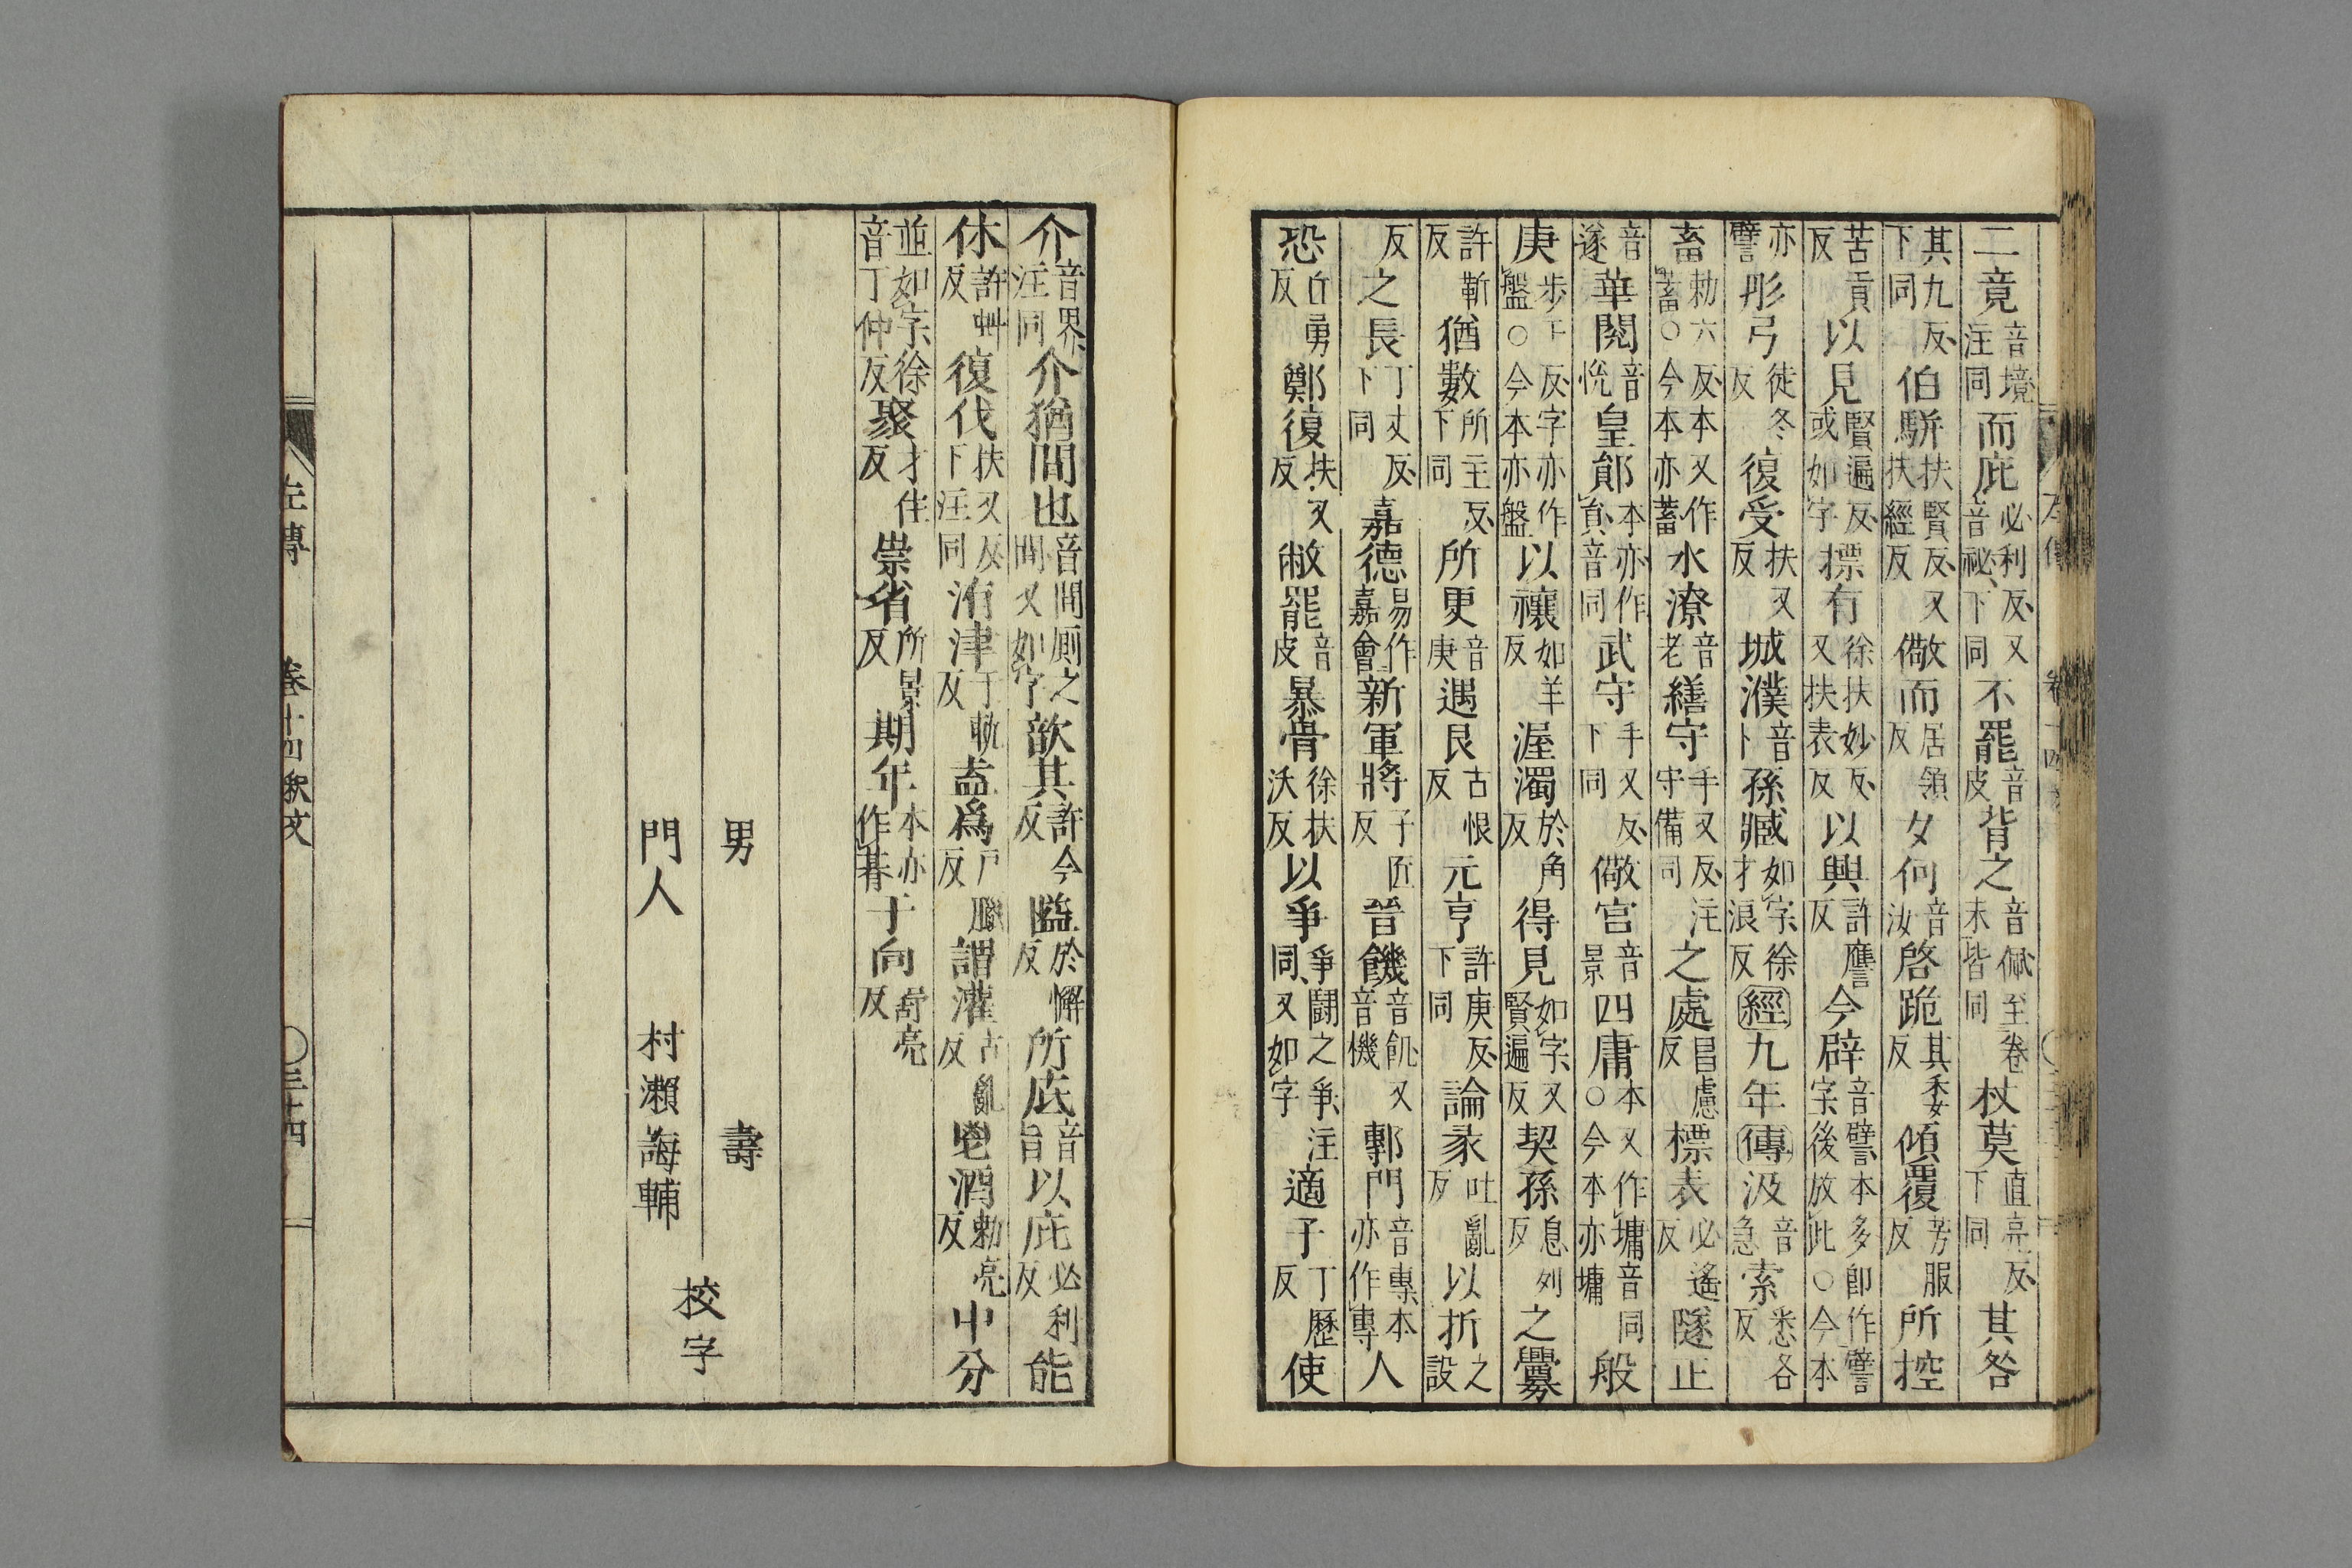 二竟音境注同而庇必利反又音祕下同不罷音皮背之音佩至卷末皆同杖莫直亮反下同其咎
其九反下同伯駢扶賢反又扶經反儆而居領反女何音汝啓跪其委反傾覆芳服反所控
苦貢反以見賢遍反或如字摽有徐扶妙反又扶表反以興許鷹反今辟音譬本多卽作譬字後放此○今本
亦譬彤弓徒冬反復受扶又反城濮音卜孫臧如字徐才浪反經九年傳汲音急索悉各反
畜勑六反本又作蓄○今本亦蓄水潦音老繕守手又反注守備同之處昌慮反標表必遙反隧正
音遂華閱音悅皇鄖本亦作䢵音同武守手又反下同儆宮音景四庸本又作墉音同○今本亦墉般
庚步干反字亦作盤○今本亦盤以禳如羊反渥濁於角反得見如字又賢遍反契孫息列反之釁
許靳反猶數所主反下同所更音庚遇艮古恨反元亨許庚反下同論彖吐亂反以折之設
反之長丁丈反下同嘉德易作嘉會新軍將子匠反晉饑音飢又音機鄟門音專本亦作專人
恐丘勇反鄭復扶又反敝罷音皮暴骨徐扶沃反以爭爭鬪之爭注同又如字適子丁歷反使
介音界注同介猶間也音間厠之間又如字歆其許今反隘於懈反所厎音旨以庇必利反能
休許虯反復伐扶又反下注同洧津于軌反盍爲戶臘反謂灌古亂反鬯酒勅亮反中分
並如字徐音丁仲反聚才住反崇省所景反期年本亦作朞于向舒亮反
男 壽
門人 村瀨誨輔
校字
左傳 卷十四釈文 ○三十四